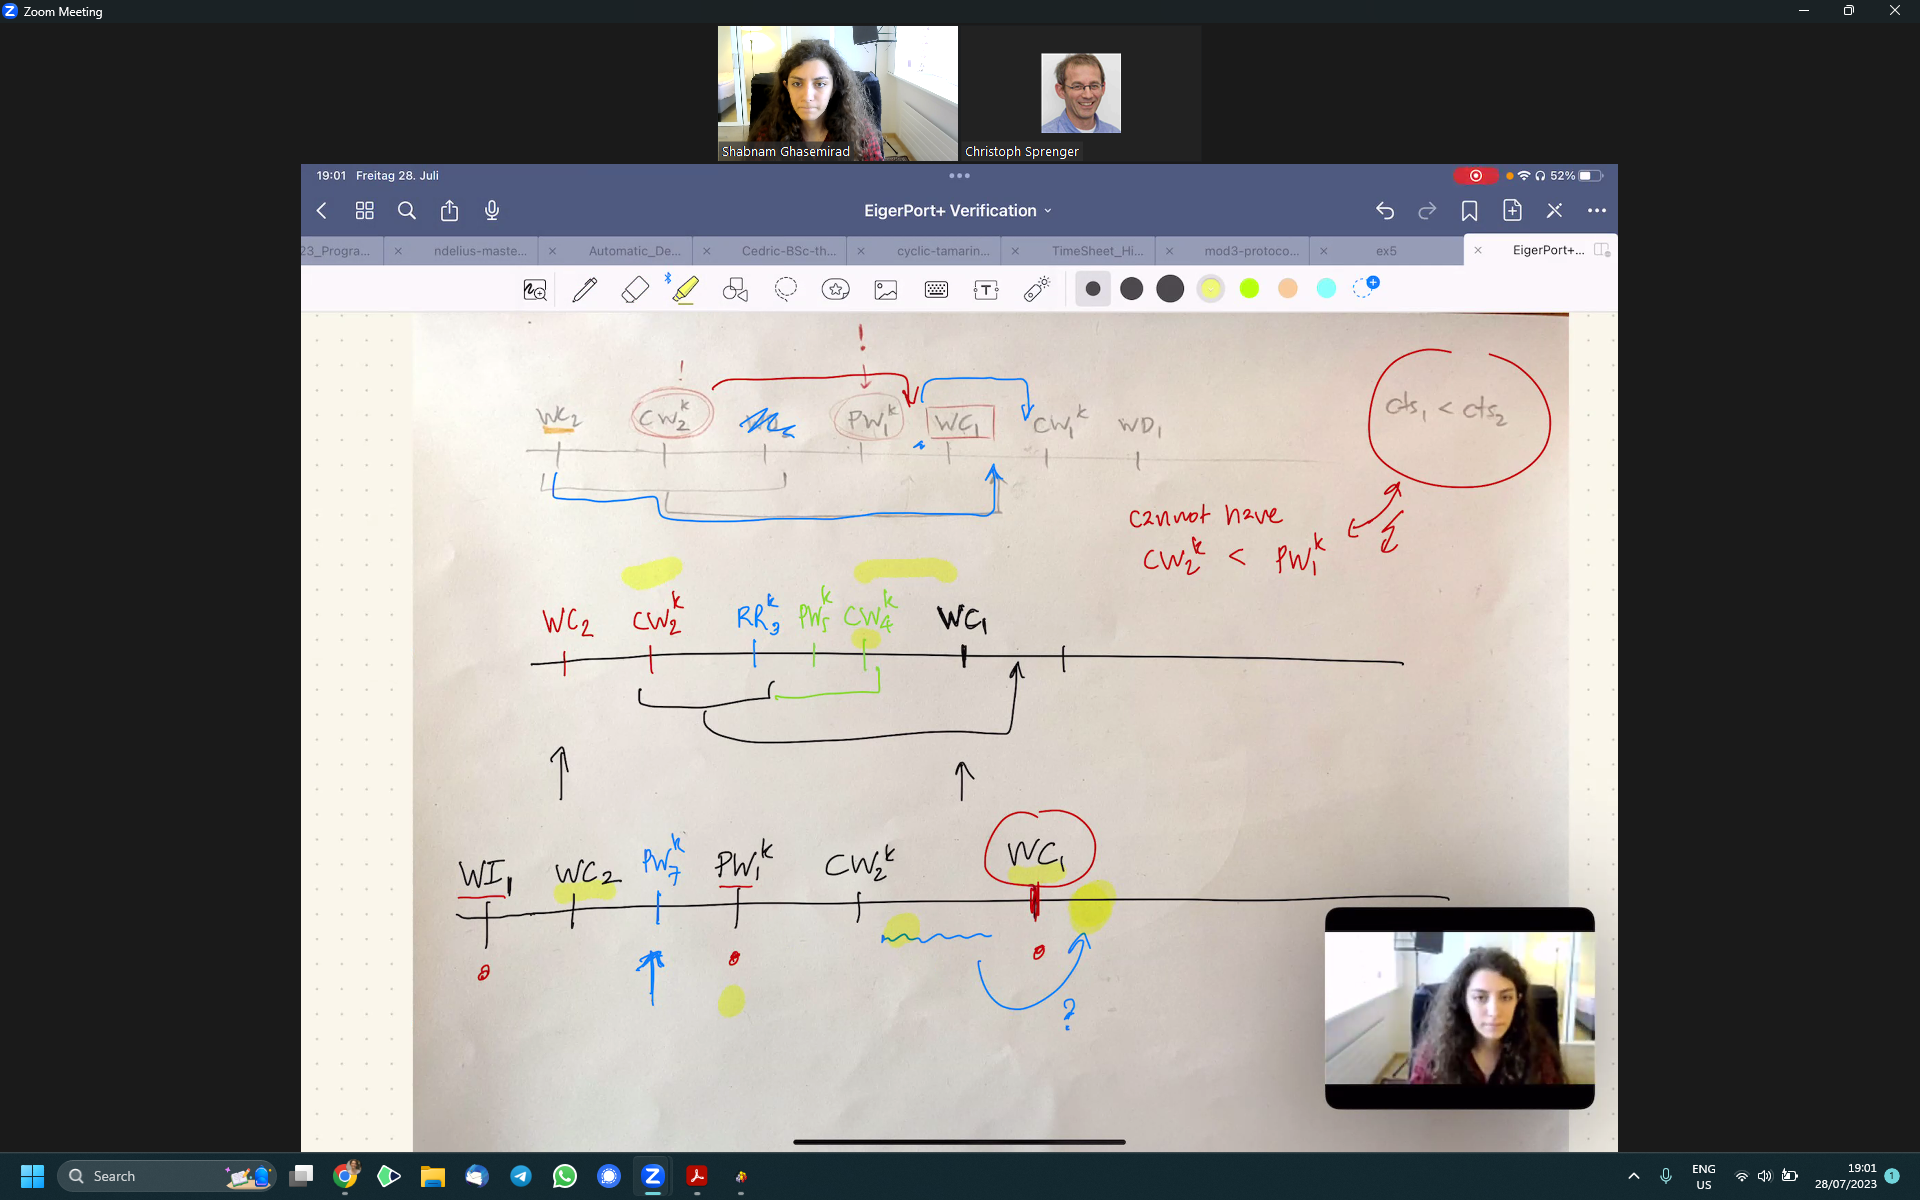 Zoom Meeting
Shabnam Ghasemirad
Christoph Sprenger
19:01 Freitag 28. Juli
52%
EigerPort+ Verification
23_Progra...
ndelius-maste...
Automatic_De...
Cedric-BSc-th...
cyclic-tamarin...
TimeSheet_Hi...
mod3-protoco...
ex5
EigerPort+...
! !
WC₂ CW₂ᵏ PW₁ᵏ WC₁ CW₁ᵏ WD₁
cts₁ < cts₂
cannot have
CW₂ᵏ < PW₁ᵏ
WC₂ CW₂ᵏ RR₃ᵏ PW₅ᵏ CW₄ᵏ WC₁
WI₁ WC₂ PW₇ᵏ PW₁ᵏ CW₂ᵏ WC₁
?
Search
ENG
US
19:01
28/07/2023
1